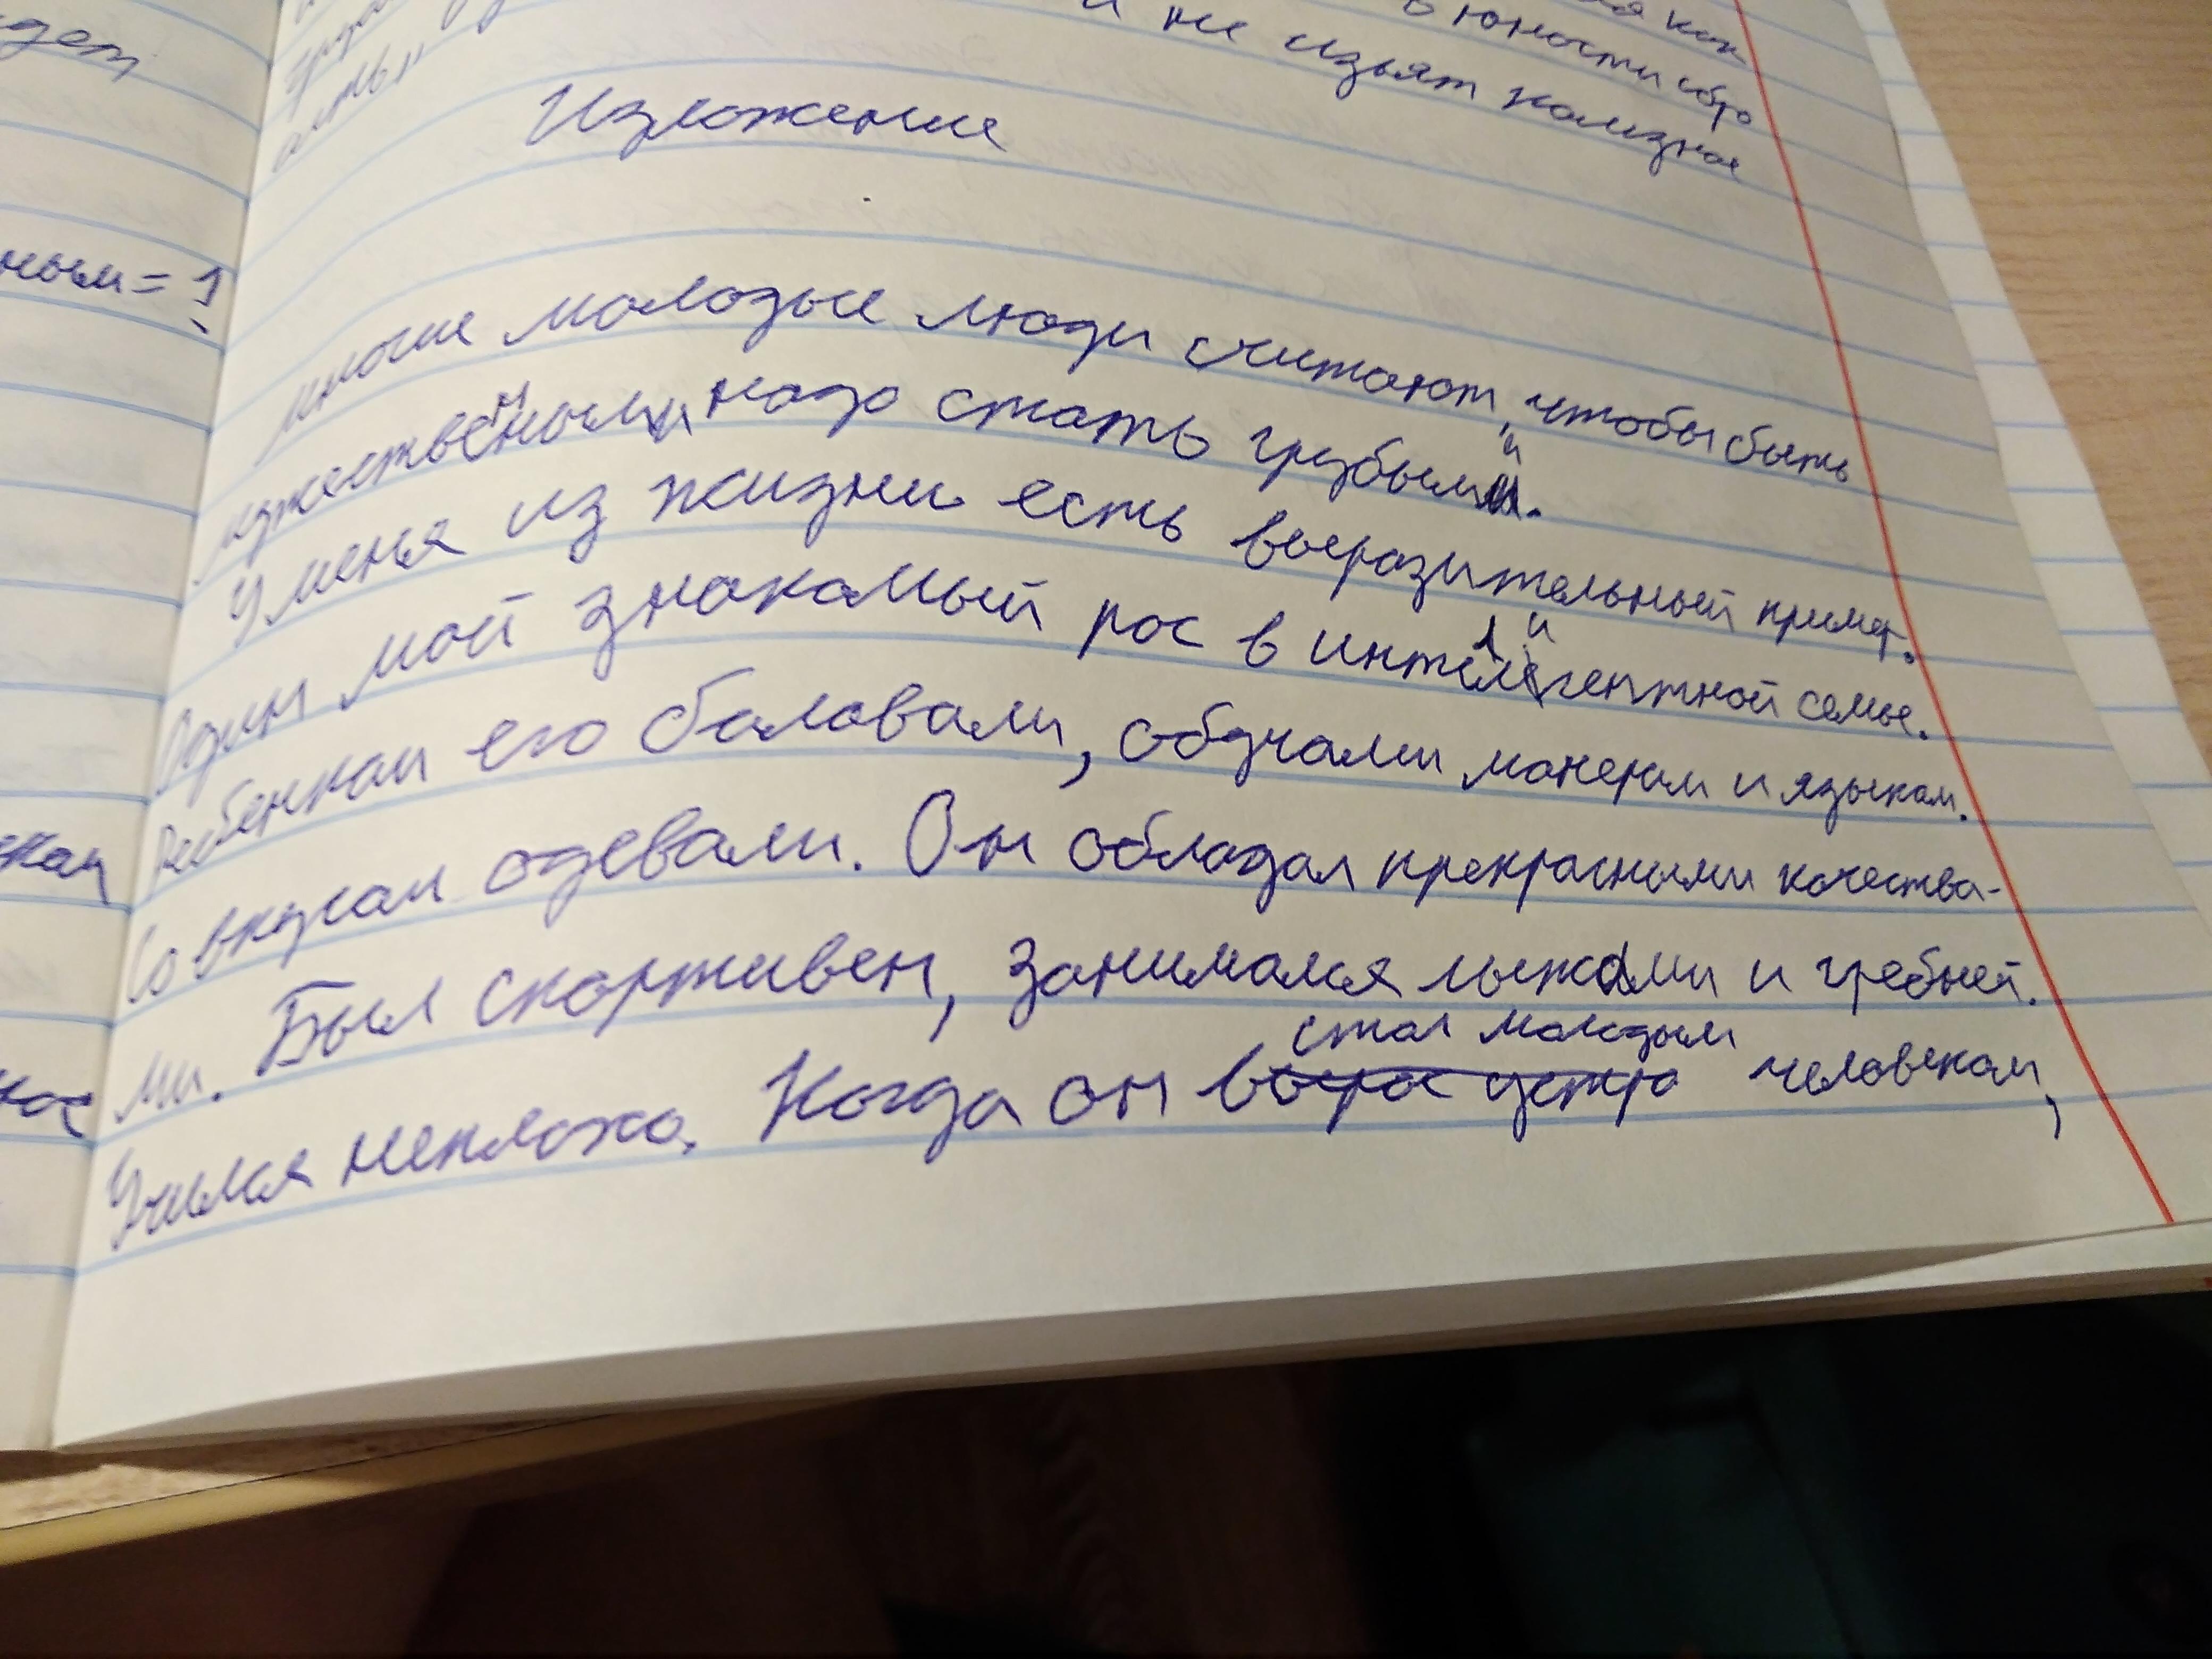 дет
ным = 1
и не изъят
в юности
Изложение
многие молодые люди считают, чтобы быть
мужественными надо стать грубыми.
У меня из жизни есть выразительный пример.
Один мой знакомый рос в интеллигентной семье.
Ребенком его баловали, обучали манерам и языкам.
Со вкусом одевали. Он обладал прекрасными качества-
ми. Был спортивен, занимался лыжами и греблей.
стал молодым
Учился неплохо. Когда он вырос человеком,